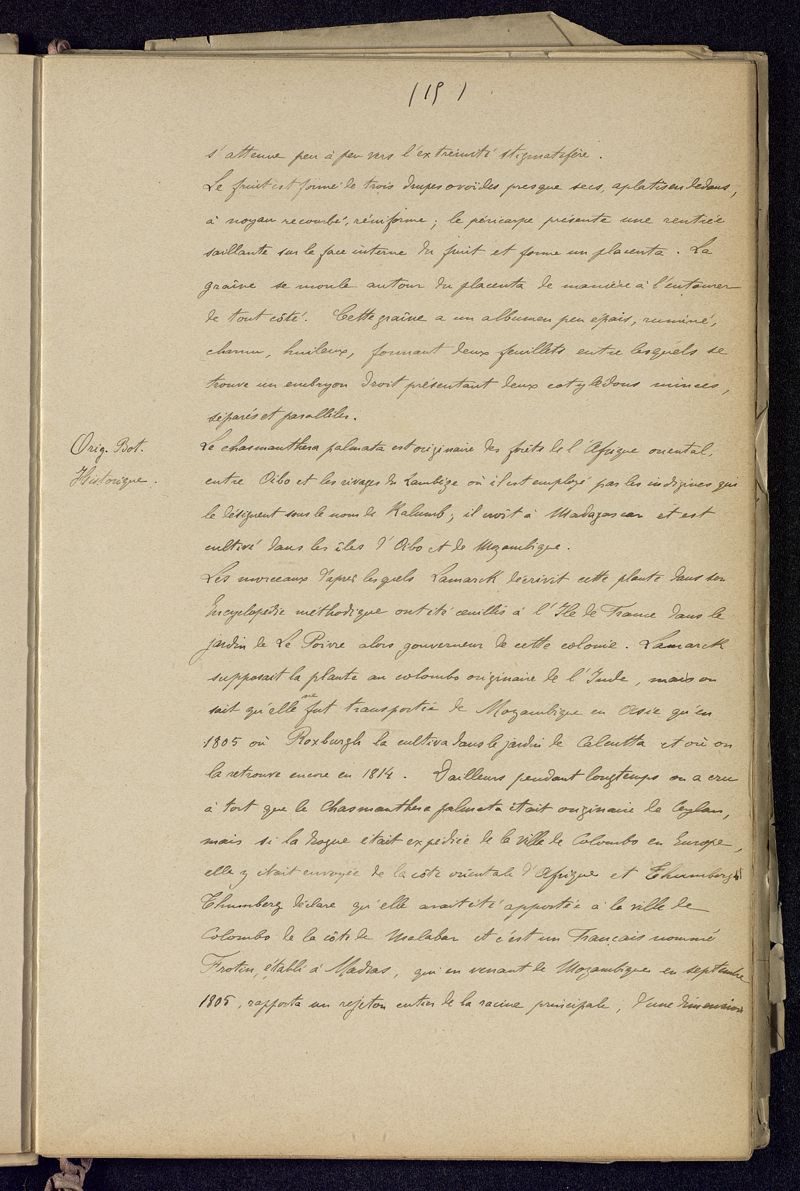 (15)
s'attenue peu à peu vers l'extrémité stigmatifère.
Le fruit est formé de trois drupes ovoïdes presque secs, aplatis en dedans,
à noyau recourbé, réniforme; le péricarpe présente une rentrée
saillante sur la face interne du fruit et forme un placenta. La
graine se moule autour du placenta de manière à l'entourer
de tout côté. Cette graine a un albumen peu épais, ruminé,
charnu, huileux, formant deux feuillets entre lesquels se
trouve un embryon droit présentant deux cotylédons minces,
séparés et parallèles.
Orig. Bot.
Historique.
Le chasmanthera palmata est originaire des forêts de l'Afrique oriental,
entre Oibo et les rivages du Zambèze où il est employé par les indigènes qui
le désignent sous le nom de Kalumb; il croît à Madagascar et est
cultivé dans les îles d'Oibo et de Mozambique.
Les morceaux d'après lesquels Lamarck décrivit cette plante dans son
Encyclopédie méthodique ont été cueillis à l'Ile de France dans le
jardin de Le Poivre alors gouverneur de cette colonie. Lamarck
supposait la plante au colombo originaire de l'Inde, mais on
sait qu'elle ne fut transportée de Mozambique en Asie qu'en
1805 où Roxburgh la cultiva dans le jardin de Calcutta et où on
la retrouve encore en 1814. D'ailleurs pendant longtemps on a cru
à tort que le Chasmanthera palmata était originaire de Ceylan,
mais si la drogue était expédiée de la ville de Colombo en Europe,
elle y était envoyée de la côte orientale d'Afrique et Thumberg
Thumberg déclare qu'elle avait été apportée à la ville de
Colombo de la côte de Malabar et c'est un Français nommé
Frotin, établi à Madras, qui en venant de Mozambique en septembre
1805, rapporta un rejeton entier de la racine principale, d'une dimension